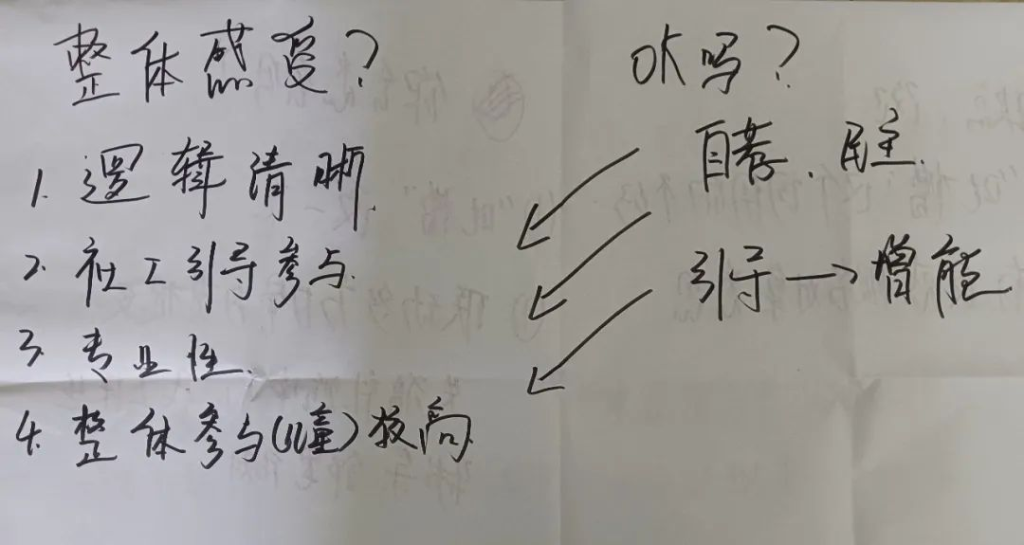 整体感受?
1. 逻辑清晰
2. 社工引导参与.
3. 专业性.
4. 整体参与(儿童)较高.
OK吗?
自荐、民主.
引导→增能